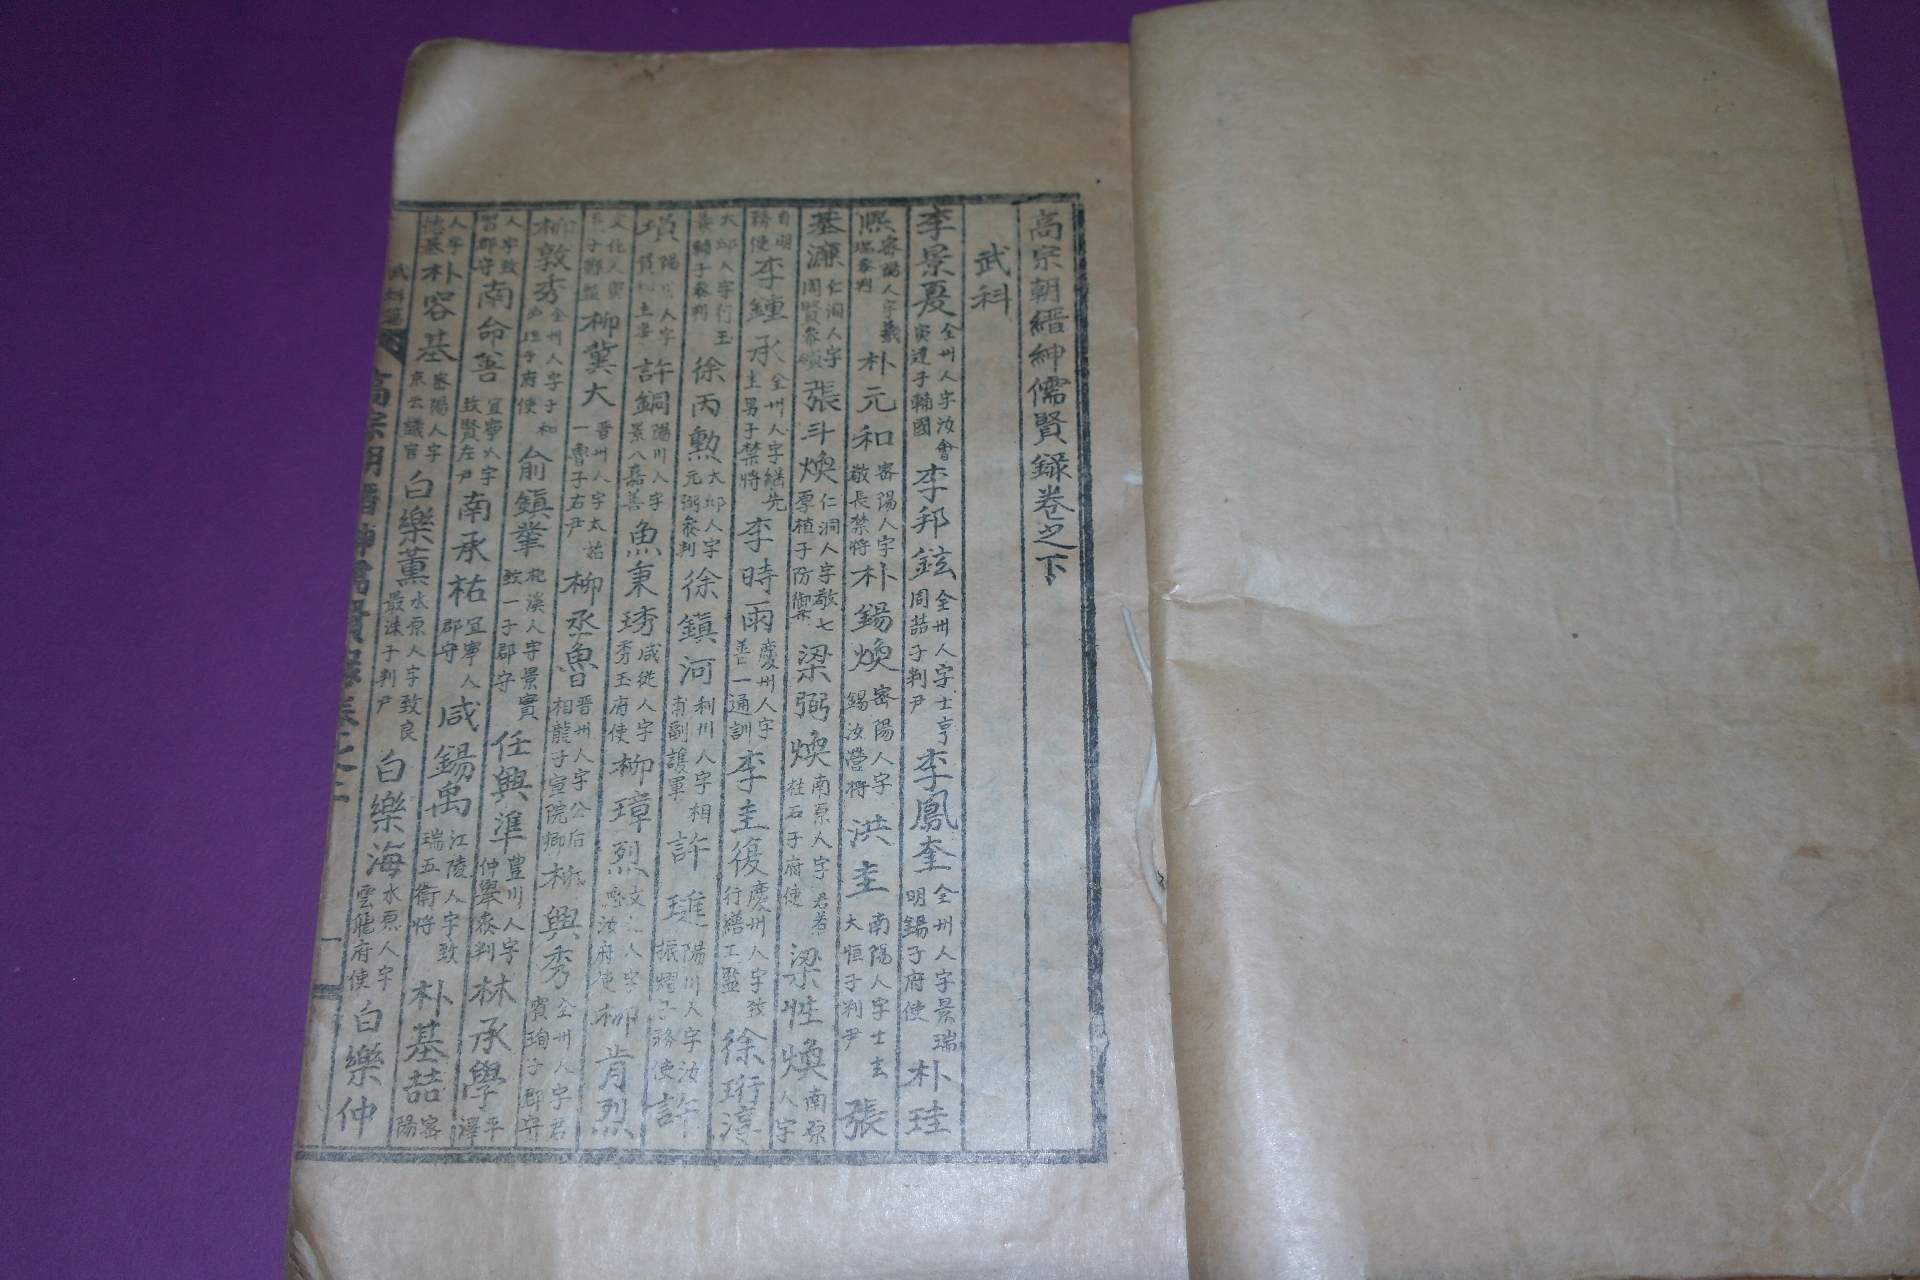 高宗朝縉紳儒賢錄卷之下
武科
李景夏全州人字汝會寅達子輔國李邦鉉全州人字士亨周喆子判尹李鳳奎全州人字景瑞明錫子府使朴珪
熙密陽人字羲瑞參判朴元和密陽人字敬長禁將朴錫煥密陽人字錫汝營將洪圭南陽人字士圭大恒子判尹張
基濂仁洞人字周賢參領張斗煥仁洞人字敬七厚植子防禦梁弼煥南原人字君若柱石子府使梁性煥南原人字
自明務使李鍾承全州人字繼先圭男子禁將李時雨慶州人字善一通訓李圭復慶州人字致行繕工監徐珩淳
大邱人字行玉義輔子參判徐丙勲大邱人字元弼參判徐鎭河利川人字相甫副護軍許璡陽川人字汝振熠子務使許
瑣陽川人字質知土事許銅陽川人字景八嘉善魚秉琇咸從人字秀玉府使柳璋烈文人字汝府使柳肯烈
文化人字子柳冀大晋州人字太始一魯子右尹柳丞魯晋州人字公后相龍子宣院卿柳興秀全州人字君賓珣子郡守
柳敦秀全州人字子和珣子府使俞鎭犖杞溪人字景實致一子郡守任興準豊川人字仲擧參判林承學平澤
人字致習郡守南命善宜寧人字致賢左尹南承祐宜寧人郡守咸錫禹江陵人字致瑞五衛將朴基喆密陽
人字德基朴容基密陽人字京云議官白樂薫水原人字致良最洙子判尹白樂海水原人字雲龍府使白樂仲
高宗朝縉紳儒賢錄卷之下 一